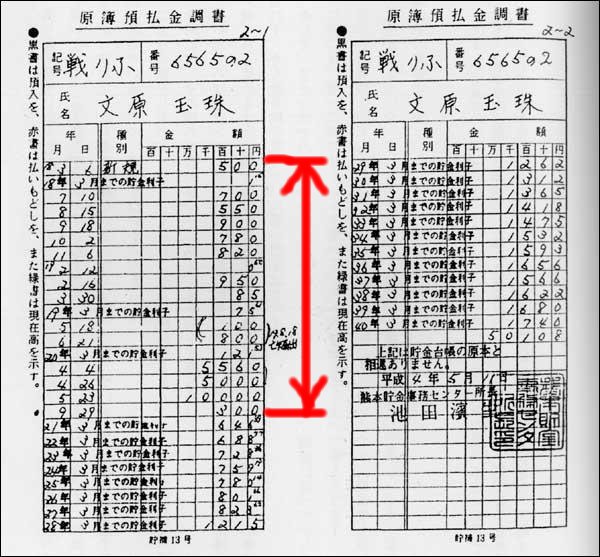 原簿預払金調書
2~1
●黒書は預入を、赤書は払いもどしを、また緑書は現在高を示す。
記号 戦りふ 番号 656592
氏名 文原玉珠
年月日 種別 金額
百 十 万 千 百 十 円
18 3 6 新規 500
18年3月までの貯金利子
7 10 700
8 15 550
9 18 900
10 2 780
11 6 820
19 2 12
2 16 950
3 30 85
19年3月までの貯金利子
5 18 100
6 21 800
20年3月までの貯金利子
4 4 5560
4 26 5000
5 23 10000
9 29 300
21年3月までの貯金利子
22年3月までの貯金利子
23年3月までの貯金利子
24年3月までの貯金利子
25年3月までの貯金利子
26年3月までの貯金利子
27年3月までの貯金利子
28年3月までの貯金利子 1215
貯補13号
原簿預払金調書
2~2
●黒書は預入を、赤書は払いもどしを、また緑書は現在高を示す。
記号 戦りふ 番号 656592
氏名 文原玉珠
年月日 種別 金額
百 十 万 千 百 十 円
29年3月までの貯金利子 1262
30年3月までの貯金利子 1312
31年3月までの貯金利子 1365
32年3月までの貯金利子 1418
33年3月までの貯金利子 1475
34年3月までの貯金利子 1532
35年3月までの貯金利子 1593
36年3月までの貯金利子 1656
37年3月までの貯金利子 1566
38年3月までの貯金利子 1622
39年3月までの貯金利子 1680
40年3月までの貯金利子 1740
50108
上記は貯金台帳の原本と
相違ありません。
平成4年5月11日
熊本貯金事務センター所長
池田濱
貯補13号